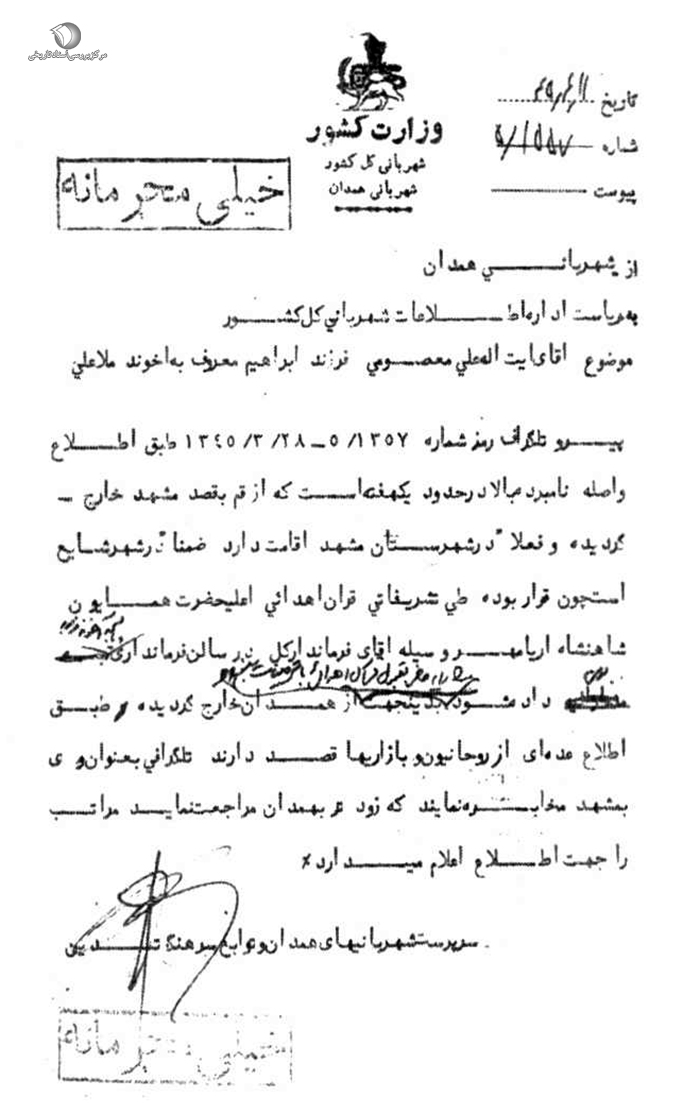 مرکز بررسی اسناد تاریخی
تاریخ ۴۵/۴/۱۱
وزارت کشور
شماره ۵/۱۵۵۷
شهربانی کل کشور
شهربانی همدان
پیوست
خیلی محرمانه
از شهربانی همدان
به ریاست اداره اطلاعات شهربانی کل کشور
موضوع آقای آیت اله علی معصومی فرزند ابراهیم معروف به آخوند ملاعلی
پیرو تلگراف رمز شماره ۱۳۵۷/۵ – ۱۳۴۵/۳/۲۸ طبق اطلاع
واصله نامبرده بالا در حدود یکهفته است که از قم بقصد مشهد خارج –
گردیده و فعلا در شهرستان مشهد اقامت دارد ضمنا در شهر شایع
است چون قرار بوده طی تشریفاتی قرآن اهدائی اعلیحضرت همایون
شاهنشاه آریامهر وسیله آقای فرماندار کل در سالن فرمانداری
داده شود بدینجهت از همدان خارج گردیده و طبق
اطلاع عده‌ای از روحانیون و بازاریها قصد دارند تلگرافی بعنوان وی
بمشهد مخابره نمایند که زودتر بهمدان مراجعت نماید مراتب
را جهت اطلاع اعلام میدارد*
سرپرست شهربانیهای همدان و توابع سرهنگ تدین
خیلی محرمانه